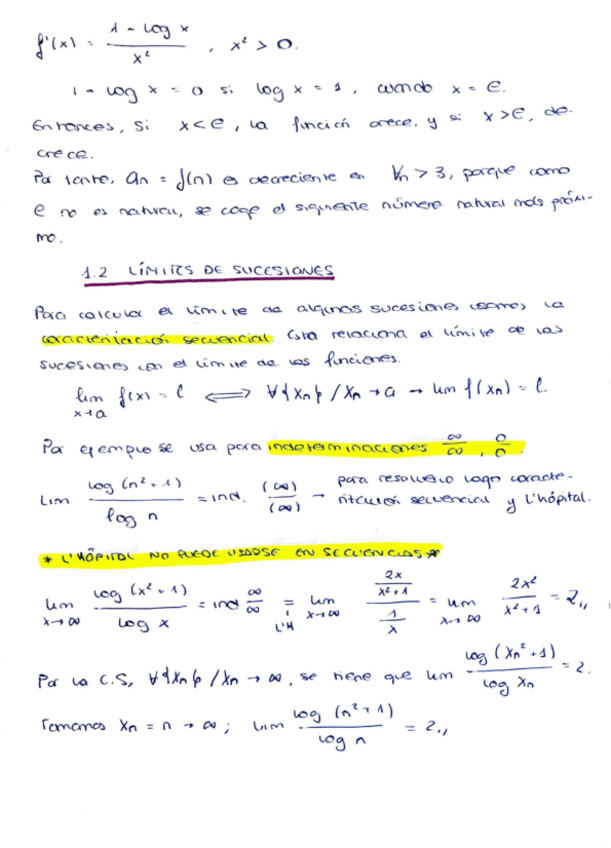 f'(x) = (1 - log x) / x² , x² > 0.
1 - log x = 0 si log x = 1, cuando x = e.
Entonces, si x < e, la función crece, y si x > e, de-
crece.
Por tanto, an = f(n) es decreciente en ∀n > 3, porque como
e no es natural, se coge el siguiente número natural más próxi-
mo.
1.2 LÍMITES DE SUCESIONES
Para calcular el límite de algunas sucesiones usamos la
caracterización secuencial. Esta relaciona el límite de las
sucesiones con el límite de las funciones.
lim x→a f(x) = l ⟺ ∀{xn} / xn → a → lim f(xn) = l.
Por ejemplo se usa para indeterminaciones ∞/∞, 0/0.
Lim log(n²+1) / log n = ind. (∞)/(∞) → para resolverlo hago caracte-
rización secuencial y L'hôpital.
* L'HÔPITAL NO PUEDE USARSE EN SECUENCIAS *
lim x→∞ log(x²+1) / log x = ind ∞/∞ = L'H lim x→∞ (2x/(x²+1)) / (1/x) = lim x→∞ 2x² / (x²+1) = 2,,
Por la C.S, ∀{xn} / xn → ∞, se tiene que lim log(xn²+1) / log xn = 2.
Tomamos xn = n → ∞; lim log(n²+1) / log n = 2,,